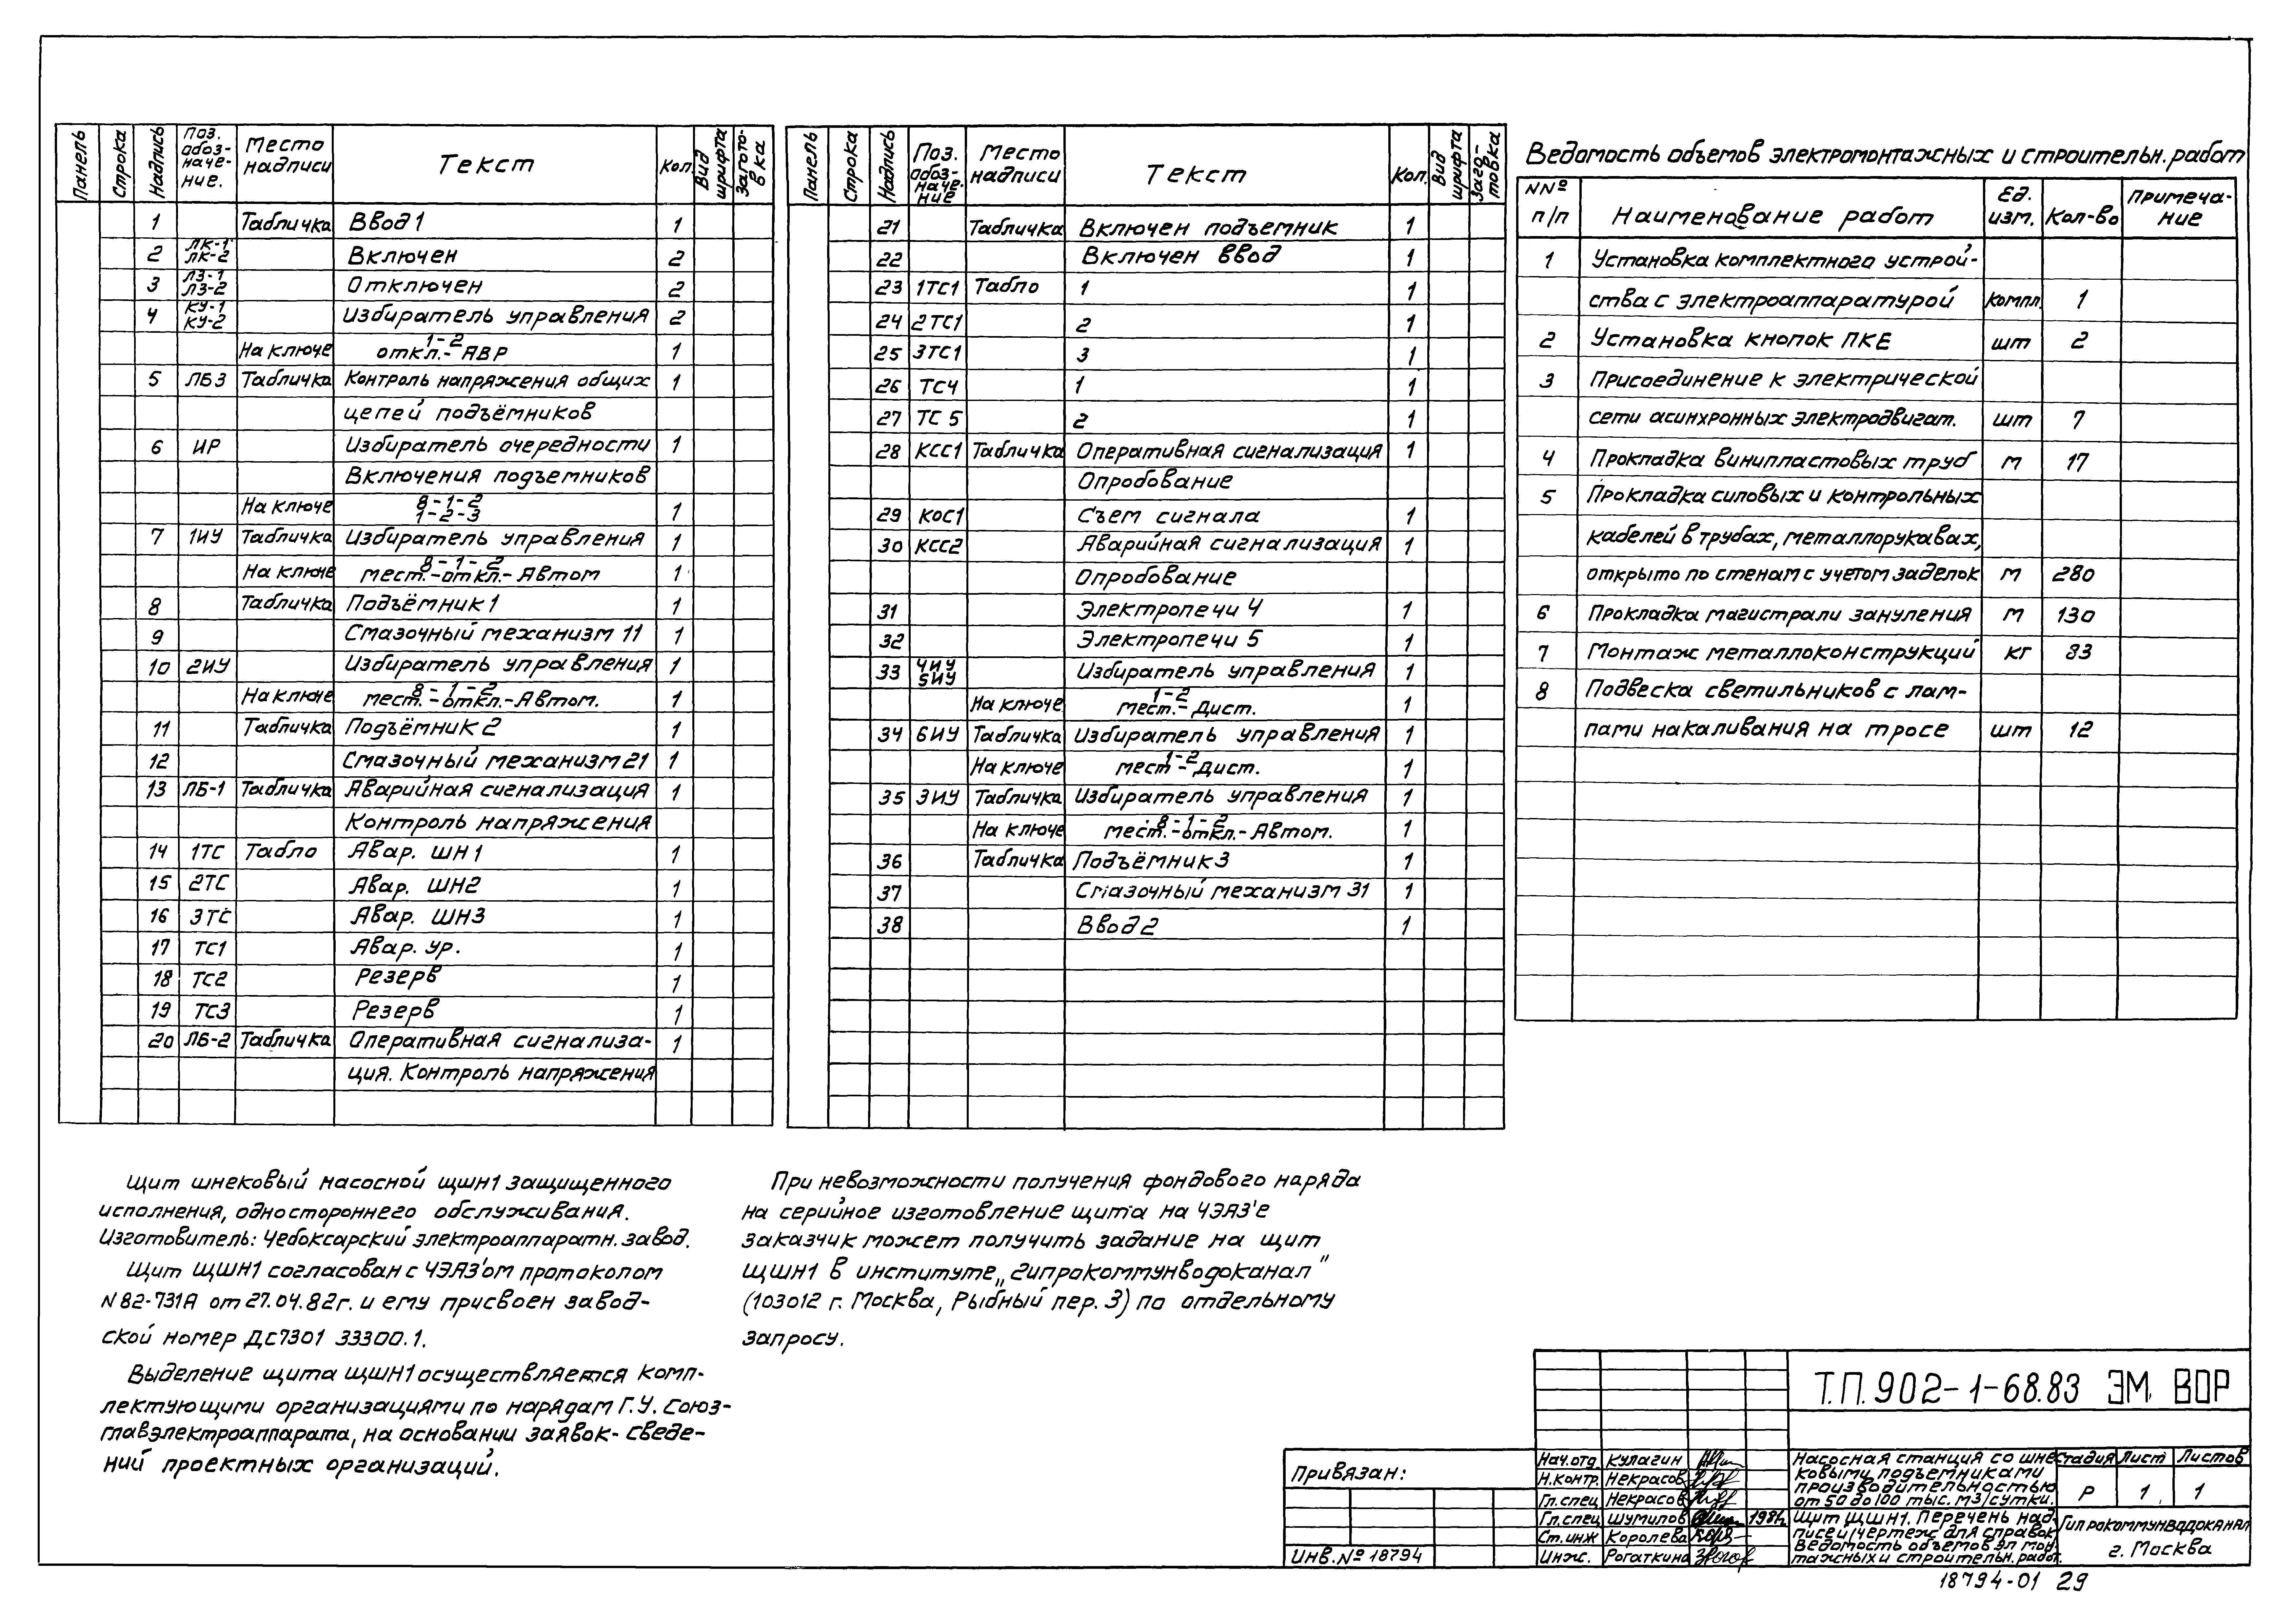 Панель Строка Надпись Поз. обоз-наче-ние. Место надписи Текст Кол. Вид шрифта Загото-вка
1 Табличка Ввод 1 1
2 ЛК-1 ЛК-2 Включен 2
3 ЛЗ-1 ЛЗ-2 Отключен 2
4 КУ-1 КУ-2 Избиратель управления 2
На ключе 1-2 откл.-АВР 1
5 ЛБ3 Табличка Контроль напряжения общих 1
цепей подъёмников
6 ИР Избиратель очередности 1
Включения подъемников
На ключе 8-1-2 1-2-3 1
7 1ИУ Табличка Избиратель управления 1
На ключе 8-1-2 мест.-откл.-Автом 1
8 Табличка Подъёмник 1 1
9 Смазочный механизм 11 1
10 2ИУ Избиратель управления 1
На ключе 8-1-2 мест.-откл.-Автом. 1
11 Табличка Подъёмник 2 1
12 Смазочный механизм 21 1
13 ЛБ-1 Табличка Аварийная сигнализация 1
Контроль напряжения
14 1ТС Табло Авар. ШН1 1
15 2ТС Авар. ШН2 1
16 3ТС Авар. ШН3 1
17 ТС1 Авар. ур. 1
18 ТС2 Резерв 1
19 ТС3 Резерв 1
20 ЛБ-2 Табличка Оперативная сигнализа- 1
ция. Контроль напряжения
Панель Строка Надпись Поз. обоз-наче-ние Место надписи Текст Кол. Вид шрифта Заго-товка
21 Табличка Включен подъемник 1
22 Включен ввод 1
23 1ТС1 Табло 1 1
24 2ТС1 2 1
25 3ТС1 3 1
26 ТС4 1 1
27 ТС 5 2 1
28 КСС1 Табличка Оперативная сигнализация 1
Опробование
29 КОС1 Съем сигнала 1
30 КСС2 Аварийная сигнализация 1
Опробование
31 Электропечи 4 1
32 Электропечи 5 1
33 4ИУ 5ИУ Избиратель управления 1
На ключе 1-2 мест.-Дист. 1
34 6ИУ Табличка Избиратель управления 1
На ключе 1-2 мест-Дист. 1
35 3ИУ Табличка Избиратель управления 1
На ключе 8-1-2 мест.-откл.-Автом. 1
36 Табличка Подъёмник 3 1
37 Смазочный механизм 31 1
38 Ввод 2 1
Ведомость объемов электромонтажных и строительн. работ
NNº п/п Наименование работ Ед. изм. Кол-во Примеча-ние
1 Установка комплектного устрой-
ства с электроаппаратурой компл. 1
2 Установка кнопок ПКЕ шт 2
3 Присоединение к электрической
сети асинхронных электродвигат. шт 7
4 Прокладка винипластовых труб м 17
5 Прокладка силовых и контрольных
кабелей в трубах, металлорукавах,
открыто по стенам с учетом заделок м 280
6 Прокладка магистрали зануления м 130
7 Монтаж металлоконструкций кг 83
8 Подвеска светильников с лам-
пами накаливания на тросе шт 12
Щит шнековый насосной щшн1 защищенного
исполнения, одностороннего обслуживания.
Изготовитель: Чебоксарский электроаппаратн. завод.
Щит ЩШН1 согласован с ЧЭАЗ'ом протоколом
N 82-731А от 27.04.82г. и ему присвоен завод-
ской номер ДС7301 33300.1.
Выделение щита ЩШН1 осуществляется комп-
лектующими организациями по нарядам Г.У. Союз-
главэлектроаппарата, на основании заявок- сведе-
ний проектных организаций.
При невозможности получения фондового наряда
на серийное изготовление щита на ЧЭАЗ'е
заказчик может получить задание на щит
ЩШН1 в институте „Гипрокоммунводоканал"
(103012 г. Москва, Рыбный пер. 3) по отдельному
запросу.
Т.П. 902-1-68.83 ЭМ. ВОР
Привязан:
Инв. № 18794
Нач.отд. Кулагин
Н.контр. Некрасов
Гл.спец Некрасов
Гл.спец Шумилов
Ст.инж Королева
Инж. Рогаткина
Насосная станция со шне-
ковыми подъемниками
производительностью
от 50 до 100 тыс. м3/сутки.
Стадия Лист Листов
Р 1 1
Щит ЩШН1. Перечень над-
писей (чертеж для справок
Ведомость объемов эл мон-
тажных и строительн. работ.
Гипрокоммунводоканал
г. Москва
18794-01 29